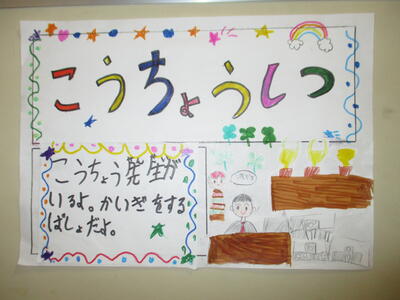 こうちょうしつ
こうちょう発生が
いるよ。かいぎをする
ばしょだよ。